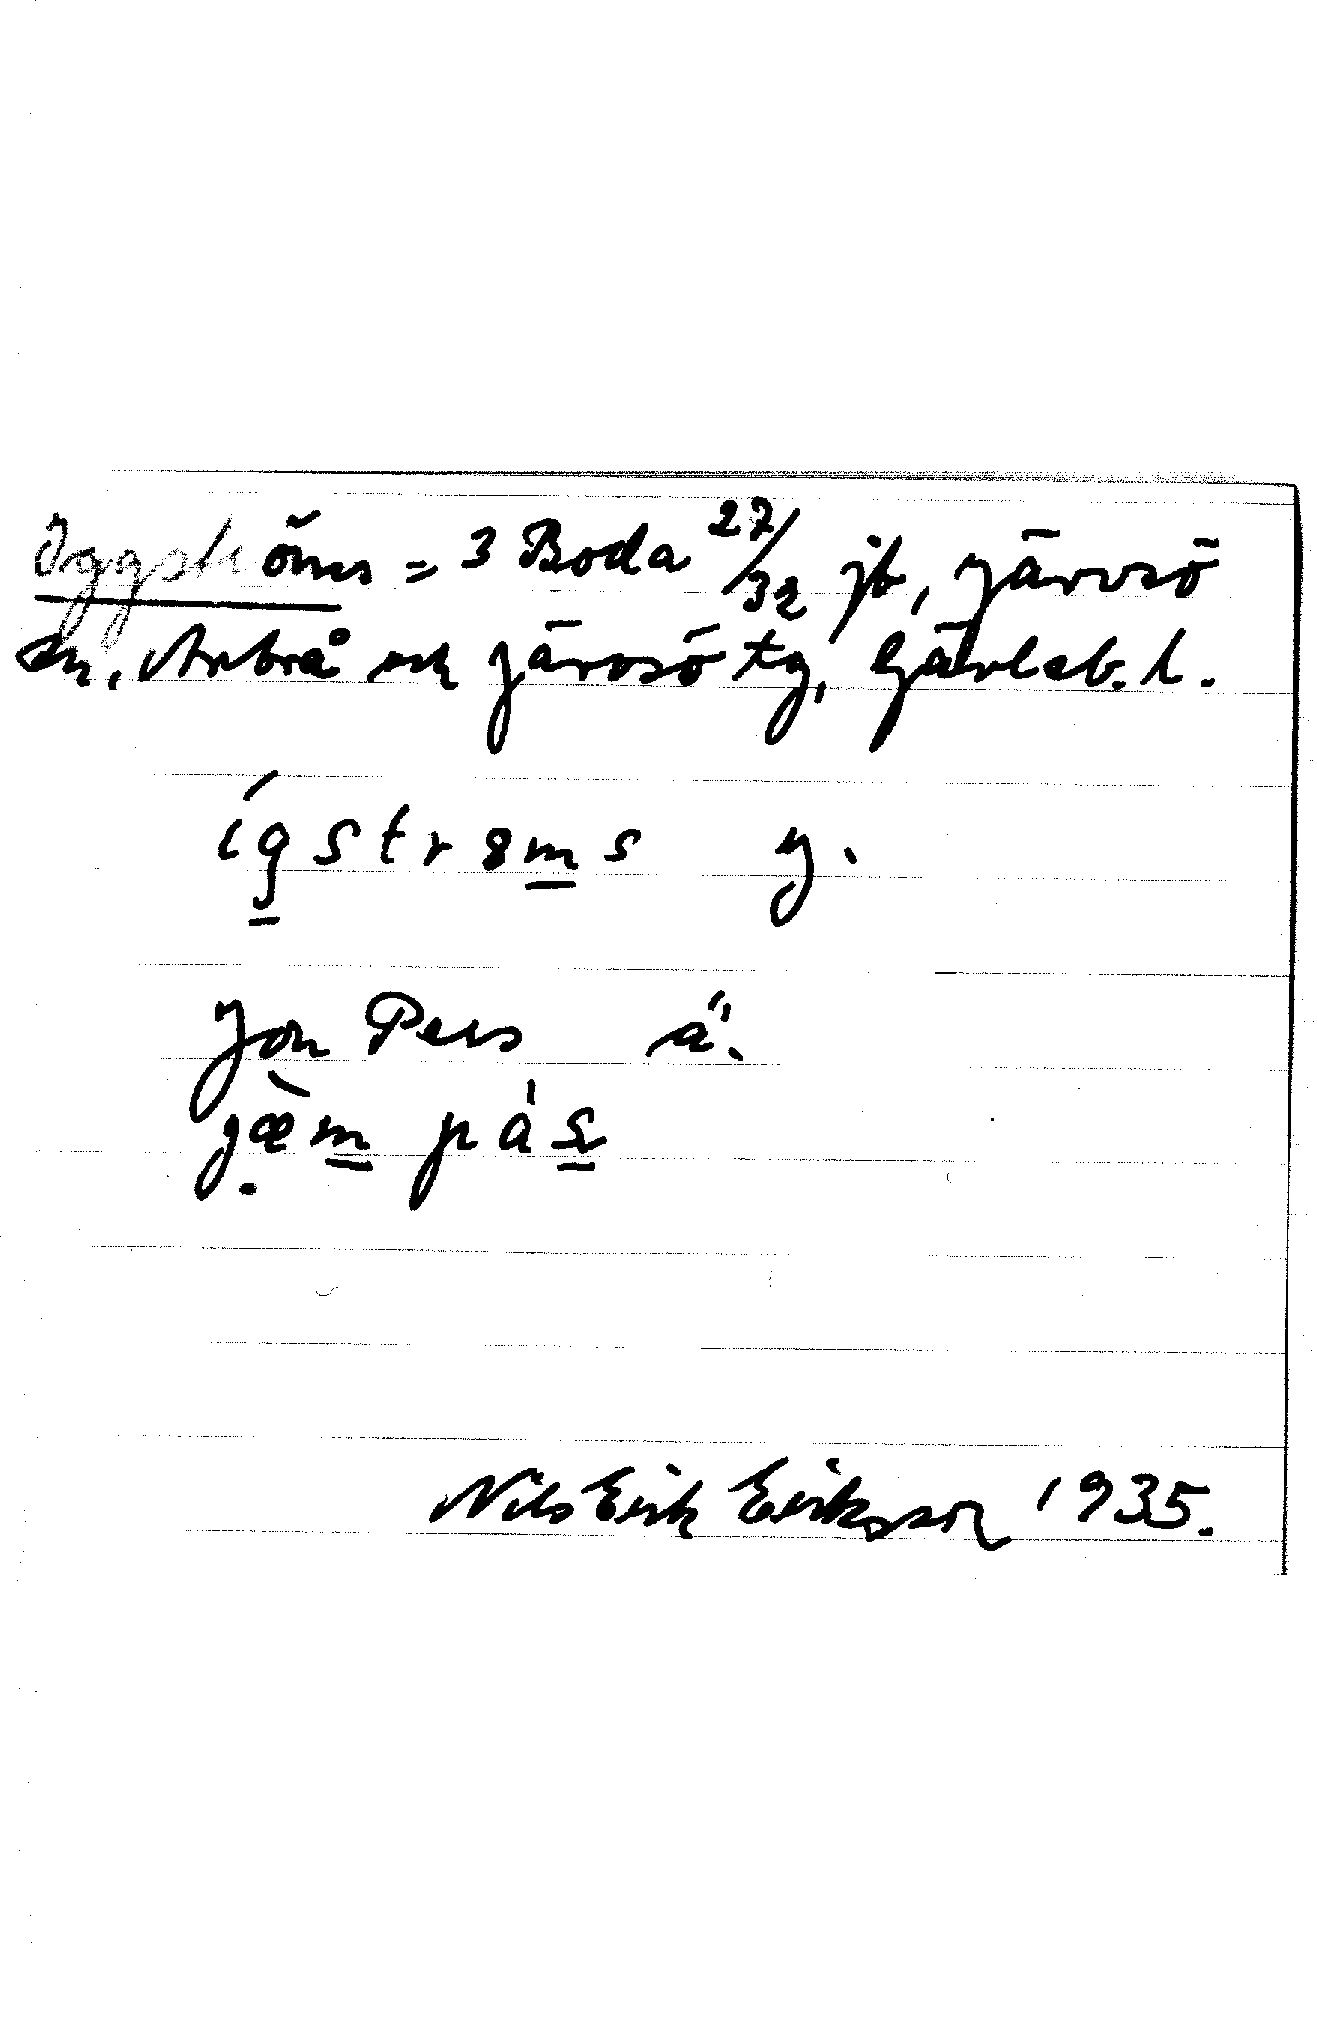 Iggströms = 3 Boda 27/32 jb, Järvsö
sn, Arbrå och Järvsö tg, Gävleb. l.
ígstrɵms y.
Jon Pers ä.
jæ̀m pás
Nils Erik Eriksson 1935.